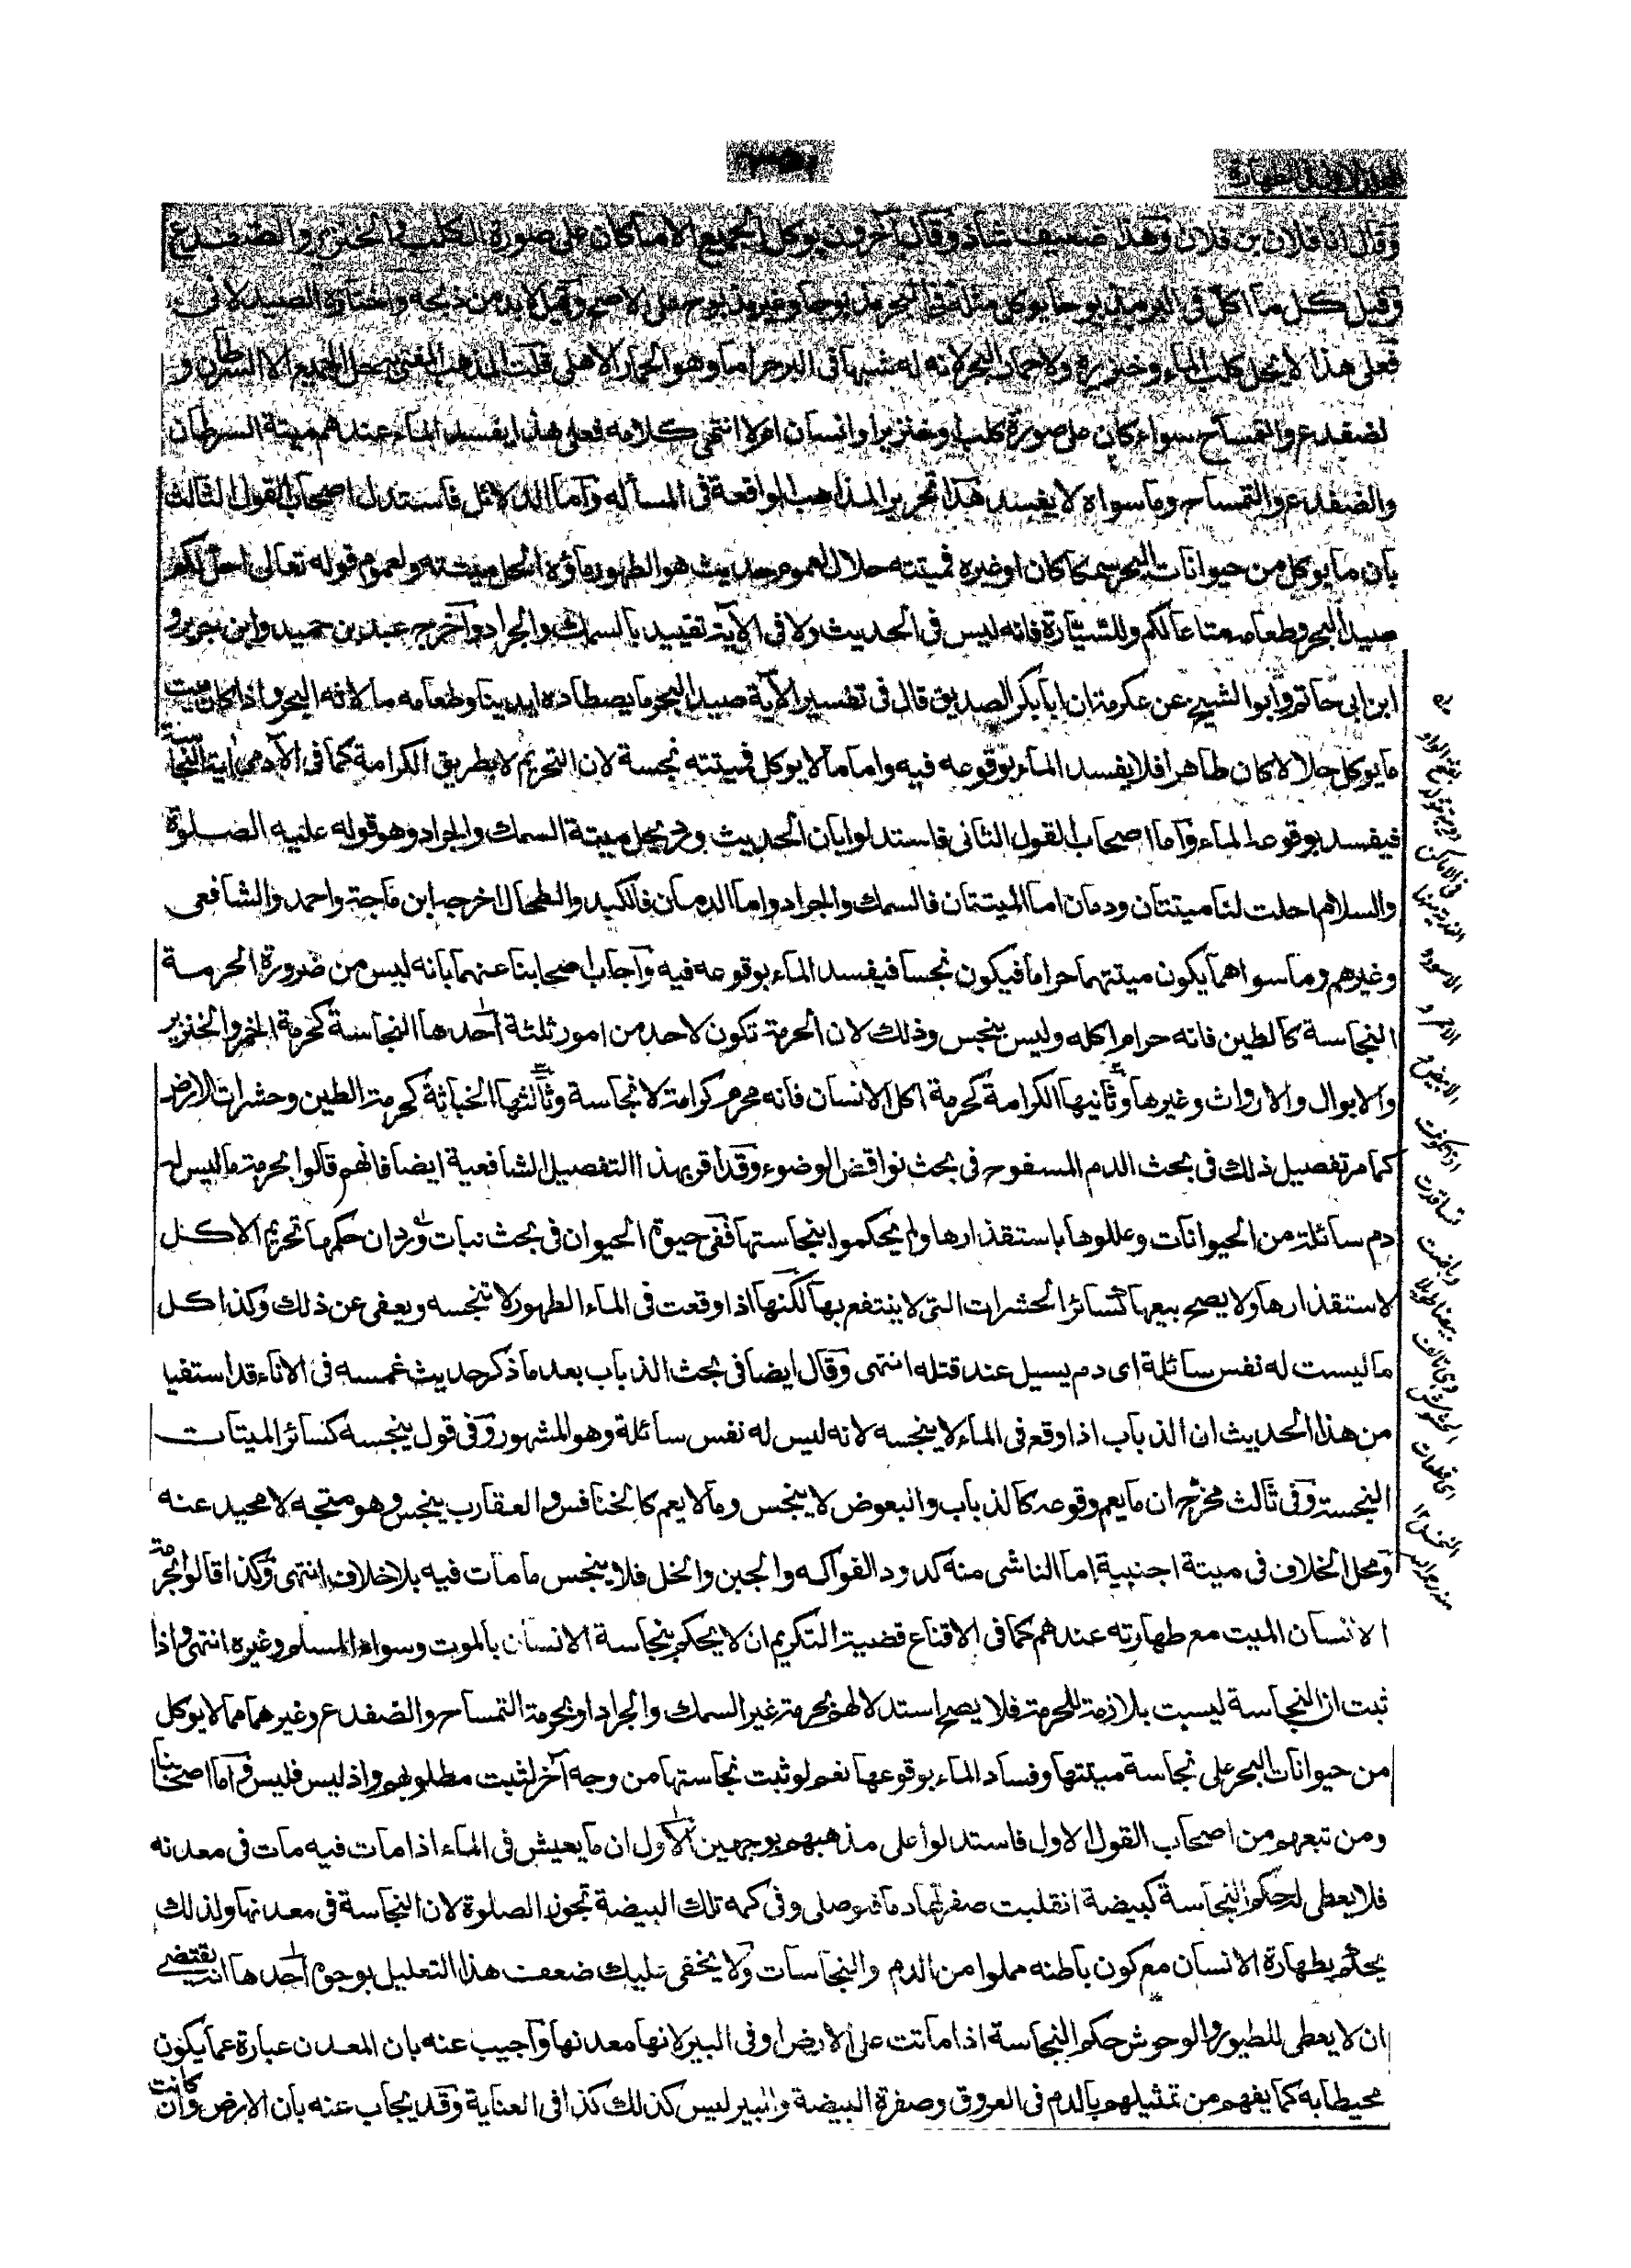 وقال انا فلان بن فلان وهذا ضعيف شاذ وقال آخرون يوكل الجميع الا ما كان على صورة الكلب والخنزير والضفدع
وقيل كل ما اكل في البر مذبوحا يوكل مثله في البحر مذبوحا وغير مذبوح على الاصح وقيل لابد من ذبحه واختاره الصيدلاني
فعلى هذا لا يحل كلب الماء وخنزيره ولا حمار البحر لانه له شبها في البر حراما وهو الحمار الاهلي قلت المذهب المفتى به حل الجميع الا السرطان و
لضفدع والتمساح سواء كان على صورة كلب او خنزير او انسان ام لا انتهى كلامه فعلى هذا يفسد الماء عندهم ميتة السرطان
والضفدع والتمساح وما سواه لا يفسد هذا تحرير المذاهب الواقعة في المسألة واما الدلائل فاستدل اصحاب القول الثالث
بان ما يوكل من حيوانات البحر سمكا كان او غيره فميتته حلال لعموم حديث هو الطهور ماؤه الحل ميتته ولعموم قوله تعالى احل لكم
صيد البحر وطعامه متاعا لكم وللسيّارة فانه ليس في الحديث ولا في الآية تقييد بالسمك والجراد وآخرج عبد بن حميد وابن جرير و
ابن ابي حاتم وابو الشيخ عن عكرمة ان ابا بكر الصديق قال في تفسير الآية صيد البحر ما يصطاده ايدينا وطعامه ما لاثه البحر واذا كان ميت
ما يوكل حلالا كان طاهرا فلا يفسد الماء بوقوعه فيه واما ما لا يوكل فميتته نجسة لان التحريم لا بطريق الكرامة كما في الآدمي آية النجاسة
فيفسد بوقوعه الماء وآما اصحاب القول الثاني فاستدلوا بان الحديث ورد بحل ميتة السمك والجراد وهو قوله عليه الصلوة
والسلام احلت لنا ميتتان ودمان اما الميتتان فالسمك والجراد واما الدمان فالكبد والطحال اخرجه ابن ماجة واحمد والشافعي
وغيرهم وما سواهما يكون ميتتهما حراما فيكون نجسا فيفسد الماء بوقوعه فيه وآجاب اصحابنا عنهما بانه ليس من ضرورة الحرمة
النجاسة كالطين فانه حرام اكله وليس بنجس وذلك لان الحرمة تكون لاحد من امور ثلثة احدها النجاسة كحرمة الخمر والخنزير
والابوال والارواث وغيرها وثانيها الكرامة كحرمة اكل الانسان فانه محرم كرامة لا نجاسة وثالثها الخباثة كحرمة الطين وحشرات الارض
كما مر تفصيل ذلك في بحث الدم المسفوح في بحث نواقض الوضوء وقد اقر بهذا التفصيل الشافعية ايضا فانهم قالوا بحرمة ما ليس له
دم سائلة من الحيوانات وعللوها باستقذارها ولم يحكموا بنجاستها ففي حيوة الحيوان في بحث نبات وردان حكمها تحريم الاكل
لاستقذارها ولا يصح بيعها كسائر الحشرات التي لا ينتفع بها لكنها اذا وقعت في الماء الطهور لا تنجسه ويعفى عن ذلك وكذا كل
ما ليست له نفس سائلة اى دم يسيل عند قتله انتهى وقال ايضا في بحث الذباب بعد ما ذكر حديث غمسه في الاناء قد استفيد
من هذا الحديث ان الذباب اذا وقع في الماء لا ينجسه لانه ليس له نفس سائلة وهو المشهور وفي قول ينجسه كسائر الميتات
النجسة وفي ثالث مخرّج ان ما يعم وقوعه كالذباب والبعوض لا ينجس وما لا يعم كالخنافس والعقارب ينجس وهو متجه لا محيد عنه
ومحل الخلاف في ميتة اجنبية اما الناشى منه كدود الفواكه والجبن والخل فلا ينجس ما مات فيه بلا خلاف انتهى وكذا قالوا بحرمة
الانسان الميت مع طهارته عندهم كما في الاقناع قضية التكريم ان لا يحكم بنجاسة الانسان بالموت وسواء المسلم وغيره انتهى واذا
ثبت ان النجاسة ليست بلازمة للحرمة فلا يصح استدلالهم بحرمة غير السمك والجراد او بحرمة التمساح والضفدع وغيرهما مما لا يوكل
من حيوانات البحر على نجاسة ميتتها وفساد الماء بوقوعها نعم لو ثبت نجاستها من وجه آخر لثبت مطلوبهم واذ ليس فليس وآما اصحابنا
ومن تبعهم من اصحاب القول الاول فاستدلوا على مذهبهم بوجهين الاول ان ما يعيش في الماء اذا مات فيه مات في معدنه
فلا يعطى له حكم النجاسة كبيضة انقلبت صفرتها دما فهو صلى وفي كمه تلك البيضة تجوز الصلوة لان النجاسة في معدنها ولذلك
يحكم بطهارة الانسان مع كون باطنه مملوا من الدم والنجاسات ولا يخفى عليك ضعف هذا التعليل بوجوه احدها انه يقتضي
ان لا يعطى للطيور والوحوش حكم النجاسة اذا ماتت على الارض او في البير لانها معدنها وآجيب عنه بان المعدن عبارة عما يكون
محيطا به كما يفهم من تمثيلهم بالدم في العروق وصفرة البيضة والبير ليس كذلك كذا في العناية وقد يجاب عنه بان الارض وان كانت